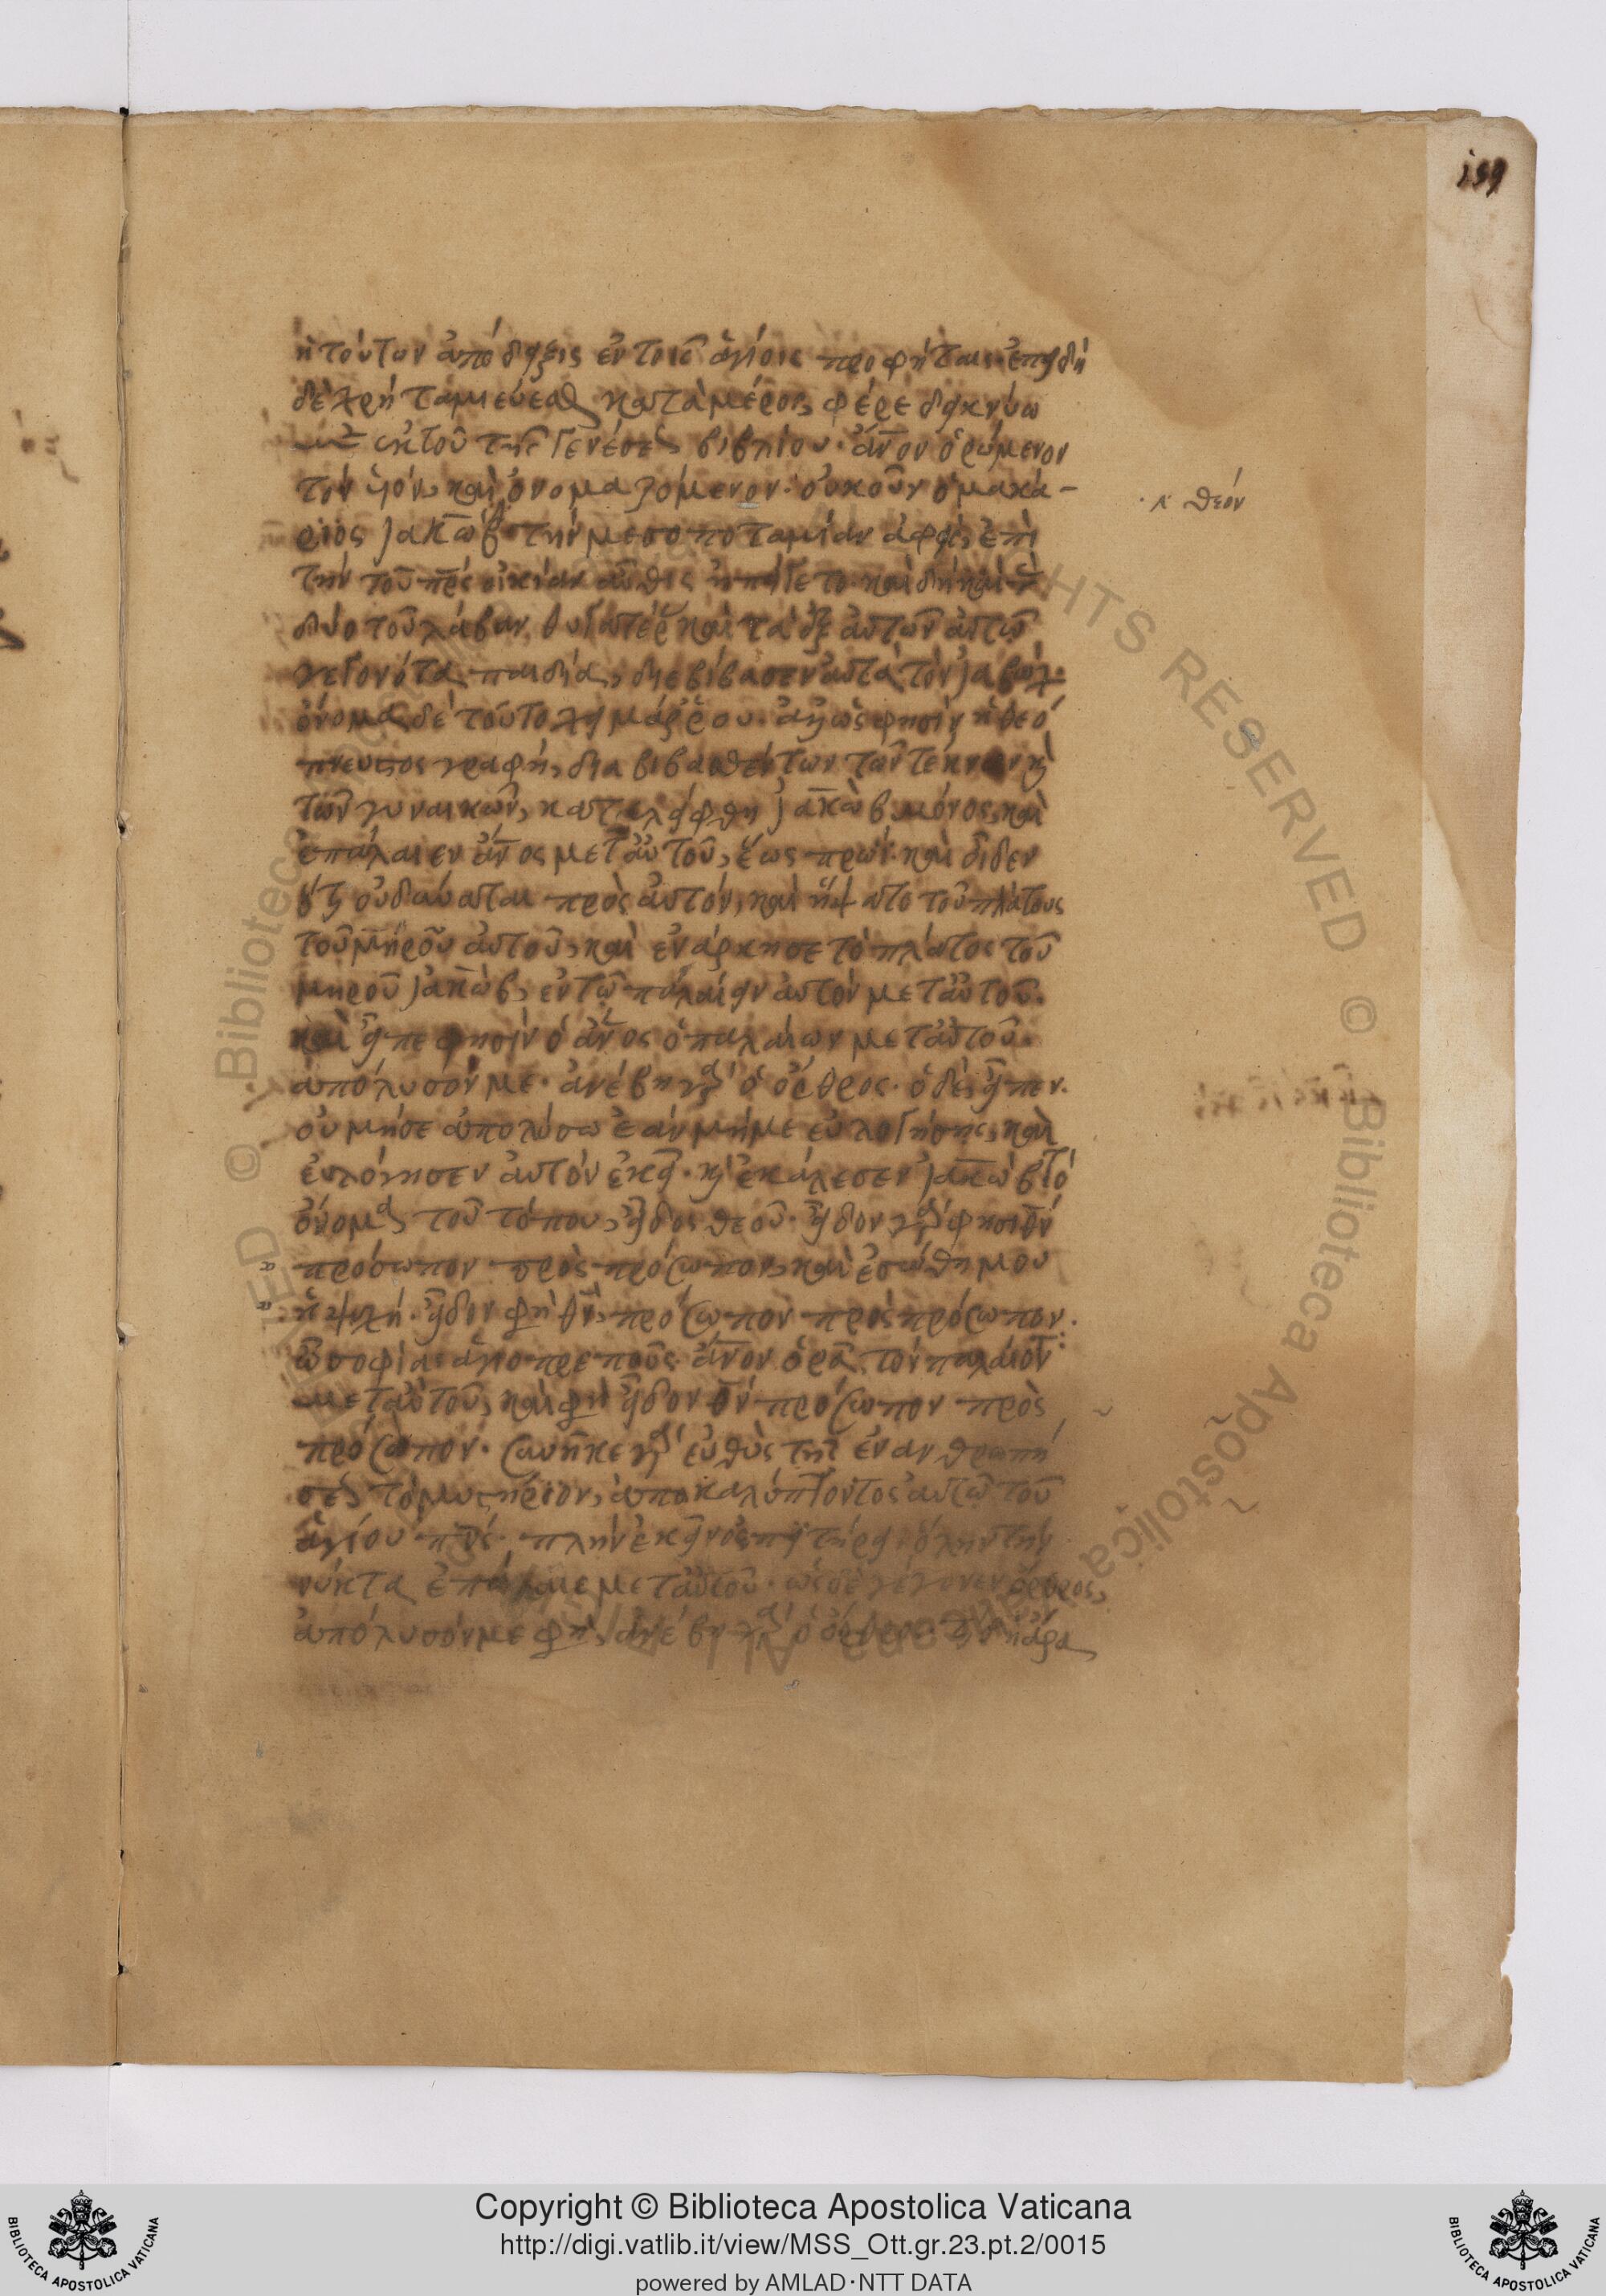 199
ἡ τούτων ἀπόδειξις ἐν τοῖς ἁγίοις προφήταις· ἐπειδὴ
δὲ χρὴ ταμιεύεσθαι κατὰ μέρος, φέρε δεικνύω
ἐκ τοῦ τῆς Γενέσεως βιβλίου· ἄνον ὁρώμενον
τὸν υἱόν, καὶ ὀνομαζόμενον· οὐκοῦν ὁ μακά-
· λ θεόν
ριος Ἰακὼβ τὴν μεσοποταμίαν ἀφεὶς, ἐπὶ
τὴν τοῦ πρς οἰκίαν αὖθις ἠπείγετο· καὶ δὴ καὶ
δύο τοῦ λάβαν θυγατέρας καὶ τὰ ἐξ αὐτῶν αὐτῶ
γεγονότα παιδία, διεβίβασεν αὐτὰ τὸν
ὄνομα δὲ τοῦτο χειμάρρου· ἀλλ' ὥς φησιν ἡ θεό
πνευστος γραφή, διαβιβασθέντων τῶν τέκνων καὶ
τῶν γυναικῶν, κατελείφθη Ἰακὼβ μόνος, καὶ
ἐπάλαιεν ἄνος μετ' αὐτοῦ, ἕως πρωΐ· καὶ εἶδεν
ὅτι οὐ δύναται πρὸς αὐτόν, καὶ ἥψατο τοῦ πλάτους
τοῦ μηροῦ αὐτοῦ, καὶ ἐνάρκησε τὸ πλάτος τοῦ
μηροῦ Ἰακὼβ, ἐν τῶ παλαίειν αὐτὸν μετ' αὐτοῦ·
καὶ εἶπε φησὶν ὁ ἄνος ὁ παλαίων μετ' αὐτοῦ·
ἀπόλυσόν με· ἀνέβη γὰρ ὁ ὄρθρος· ὁ δὲ, εἶπεν·
οὐ μή σε ἀπολύσω ἐὰν μή με εὐλογήσης, καὶ
εὐλόγησεν αὐτὸν ἐκεῖ· καὶ ἐκάλεσεν Ἰακὼβ τὸ
ὄνομα τοῦ τόπου, εἶδος θεοῦ· εἶδον γὰρ φησὶ θν
πρόσωπον πρὸς πρόσωπον, καὶ ἐσώθη μου
ἡ ψυχή· εἶδον φη θν, πρόσωπον πρὸς πρόσωπον·
ὢ σοφία ἁγιοπρεπούς· ἄνον ὁρᾶ τὸν παλαίοντα
μετ' αὐτοῦ, καὶ φη εἶδον θν πρόσωπον πρὸς
πρόσωπον· συνῆκε γὰρ εὐθὺς τῆς ἐνανθρωπή
σεως τὸ μυστήριον, ἀποκαλύπτοντος αὐτῶ τοῦ
ἁγίου πνς· πλὴν ἐκεῖνος ὅλην τὴν
νύκτα ἐπάλαιε μετ' αὐτοῦ· ὡς δὲ γέγονεν ὄρθρος,
ἀπόλυσόν με φη, ἀνέβη γὰρ ὁ ὄρθρος·
© Biblioteca Apostolica Vaticana ALL RIGHTS RESERVED
Copyright © Biblioteca Apostolica Vaticana
http://digi.vatlib.it/view/MSS_Ott.gr.23.pt.2/0015
powered by AMLAD·NTT DATA
BIBLIOTECA APOSTOLICA VATICANA
BIBLIOTECA APOSTOLICA VATICANA